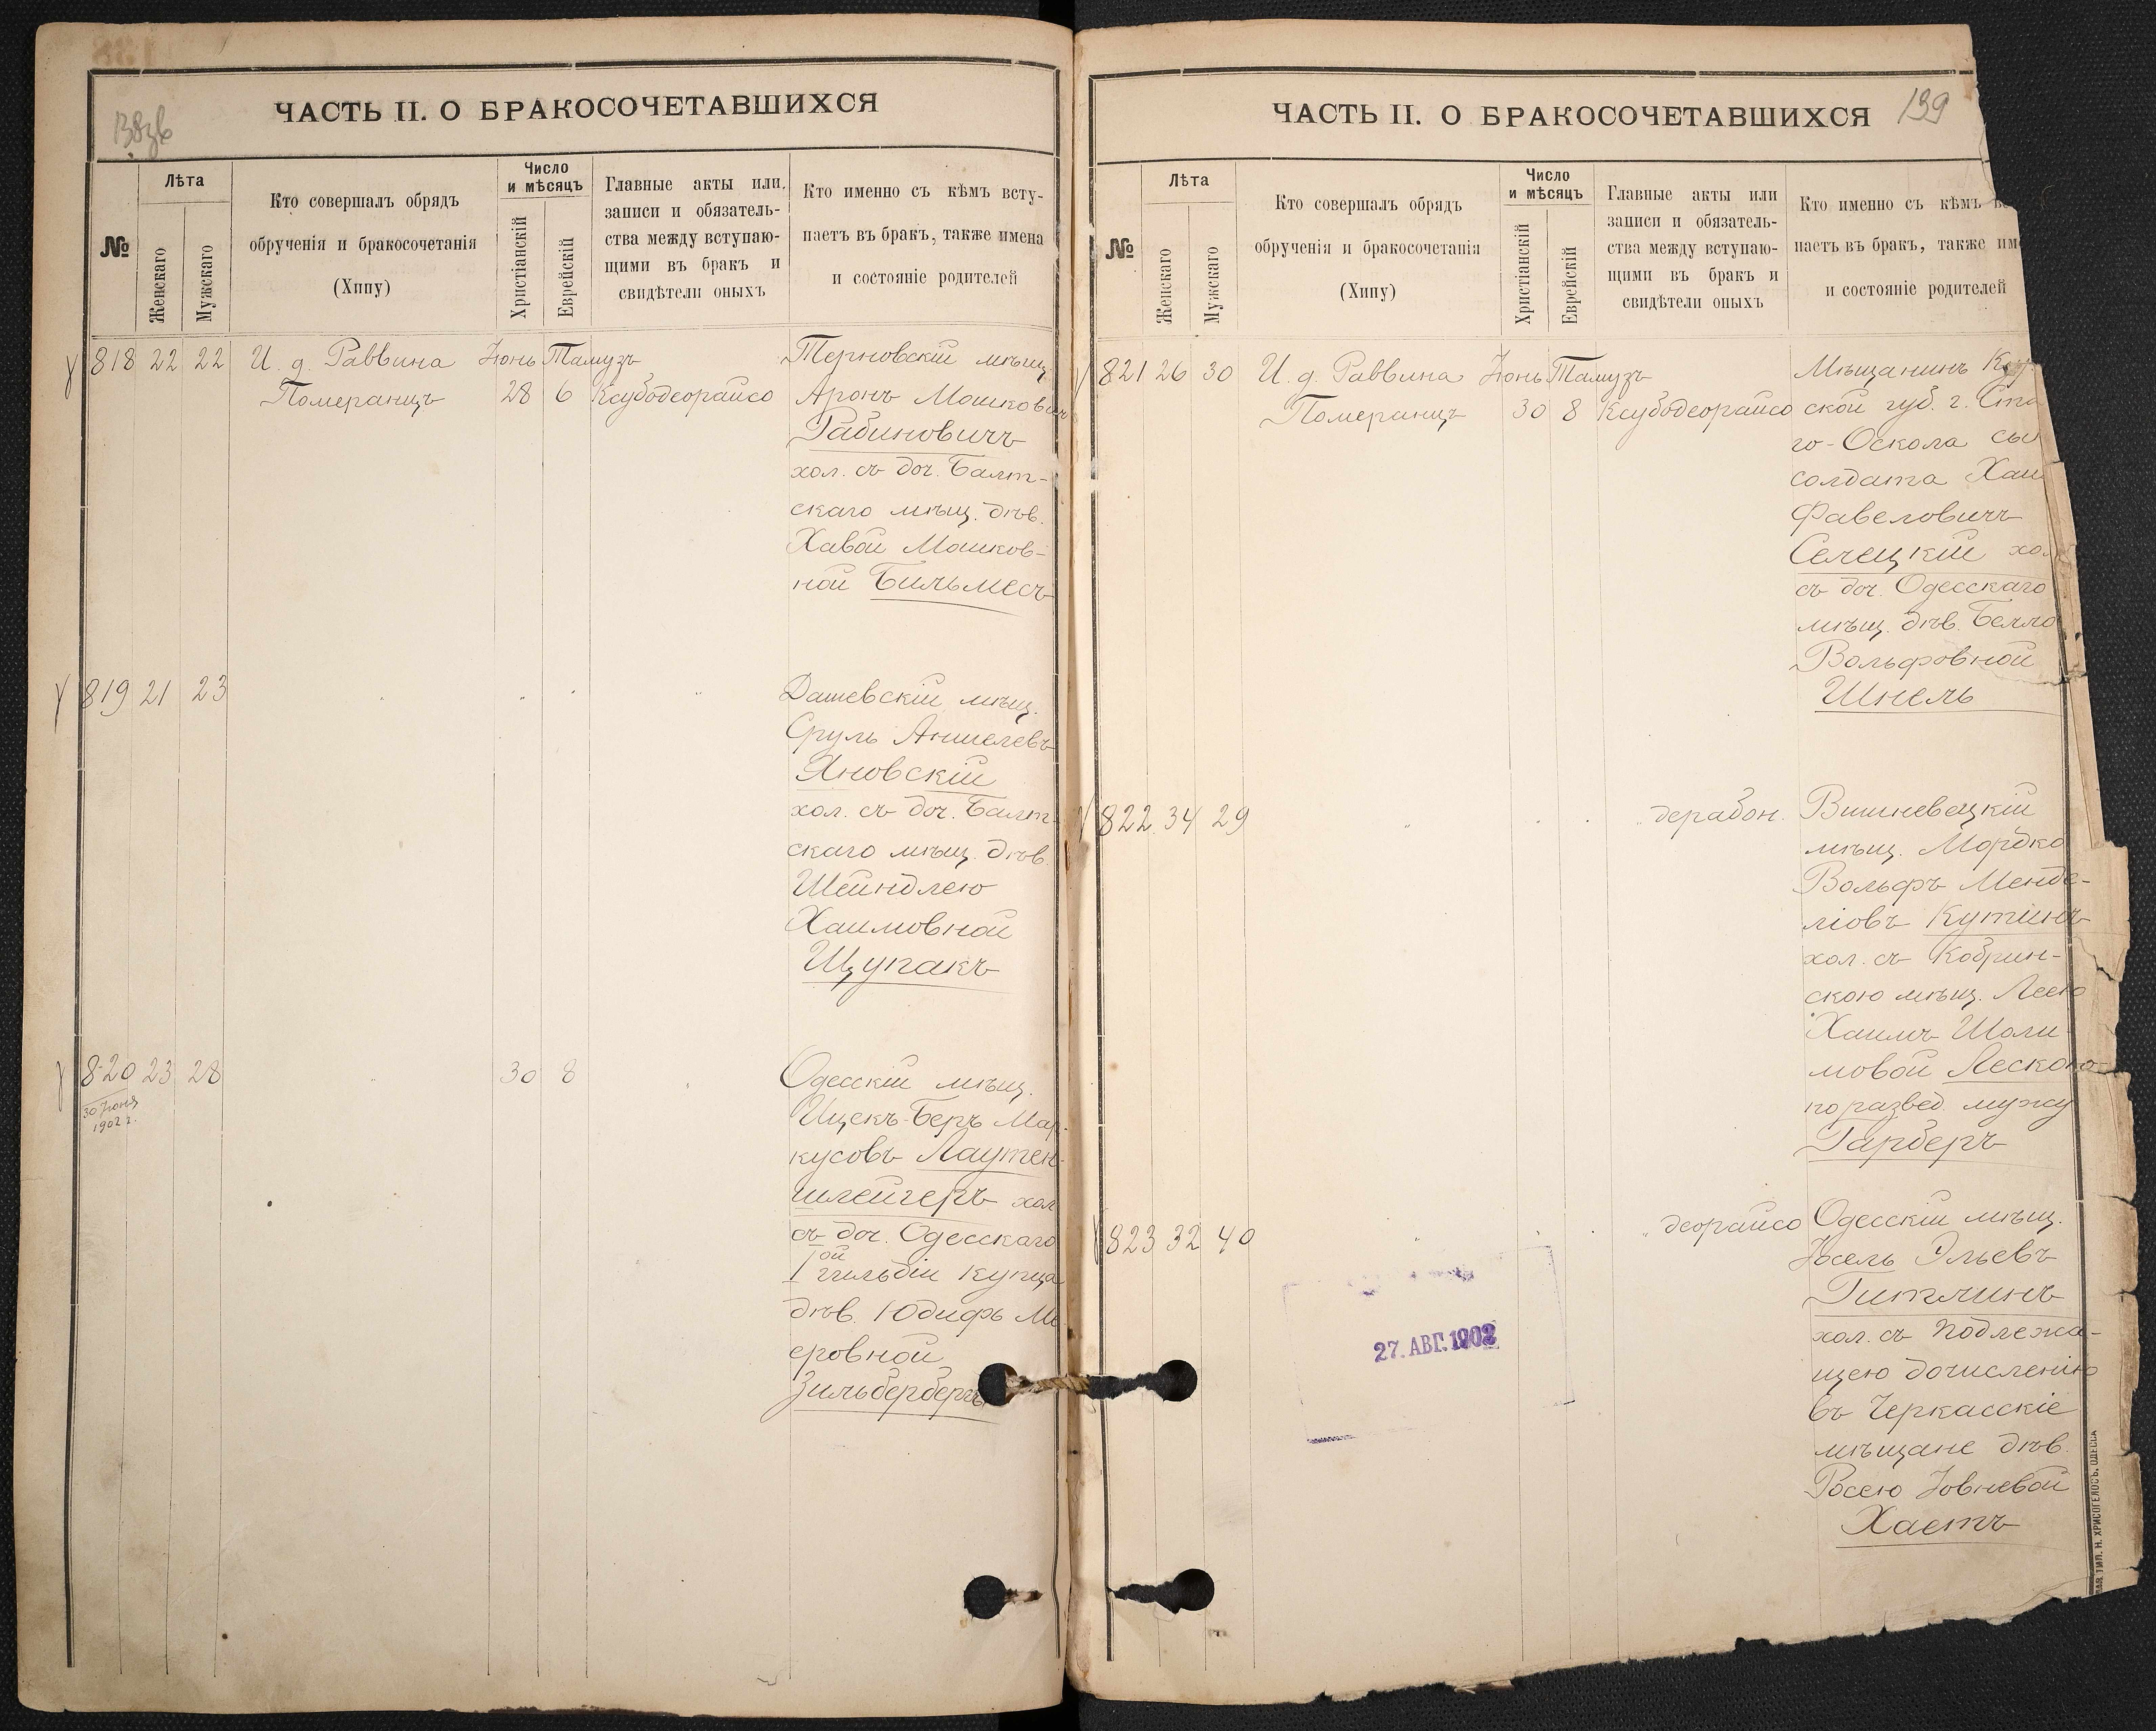 138зв
ЧАСТЬ II. О БРАКОСОЧЕТАВШИХСЯ
№
Лѣта
Женскаго
Мужскаго
Кто совершалъ обрядъ
обрученія и бракосочетанія
(Хипу)
Число
и мѣсяцъ
Христіанскій
Еврейскій
Главные акты или
записи и обязатель-
ства между вступаю-
щими въ бракъ и
свидѣтели оныхъ
Кто именно съ кѣмъ всту-
паетъ въ бракъ, также имена
и состояніе родителей
818 22 22 И. д. Раввина Іюнь Тамузъ Терновскій мѣщ.
Померанцъ 28 6 Ксубодеорайсо Аронъ Мошковичъ
Рабиновичъ
хол. съ доч. Балт-
скаго мѣщ. дѣв.
Хавой Мошков-
ной Бильмесъ
819 21 23 Дашевскій мѣщ.
Сруль Аншелевъ
Яновскій
хол. съ доч. Балт-
скаго мѣщ. дѣв.
Шейндлею
Хаимовной
Щупакъ
820 23 28 30 8 Одесскій мѣщ.
30 Іюня
1902 г.
Ицекъ-Беръ Мар-
кусовъ Лаутен-
шлейгеръ хол
съ доч. Одесскаго
I ой гильдіи купца
дѣв. Юдифъ Ме
еровной
Зильбербергъ
139
ЧАСТЬ II. О БРАКОСОЧЕТАВШИХСЯ
№
Лѣта
Женскаго
Мужскаго
Кто совершалъ обрядъ
обрученія и бракосочетанія
(Хипу)
Число
и мѣсяцъ
Христіанскій
Еврейскій
Главные акты или
записи и обязатель-
ства между вступаю-
щими въ бракъ и
свидѣтели оныхъ
Кто именно съ кѣмъ
паетъ въ бракъ, также им
и состояніе родителей
821 26 30 И. д. Раввина Іюнь Тамузъ Мѣщанинъ Кур
Померанцъ 30 8 Ксубодеорайсо ской губ. г. Ста
го-Оскола сы
солдата Хаи
Фавеловичъ
Селецкій хол
съ доч. Одесскаго
мѣщ. дѣв. Белло
Вольфовной
Шнель
822 34 29 дерабон. Вишневецкій
мѣщ. Мордко
Вольфъ Менде-
ліовъ Кутинъ
хол. съ Кобрин-
скою мѣщ. Леею
Хаимъ Шоли
мовой Леского
по развед. мужу
Гарберъ
823 32 40 деорайсо Одесскій мѣщ.
Іосель Эльевъ
Гитлинъ
хол. съ подлежа-
щею дочисленію
въ Черкасскіе
мѣщане дѣв.
Росею Іовневой
Хаетъ
27. АВГ. 1902
ТИП. Н. ХРИСОГЕЛОСЪ, ОДЕССА